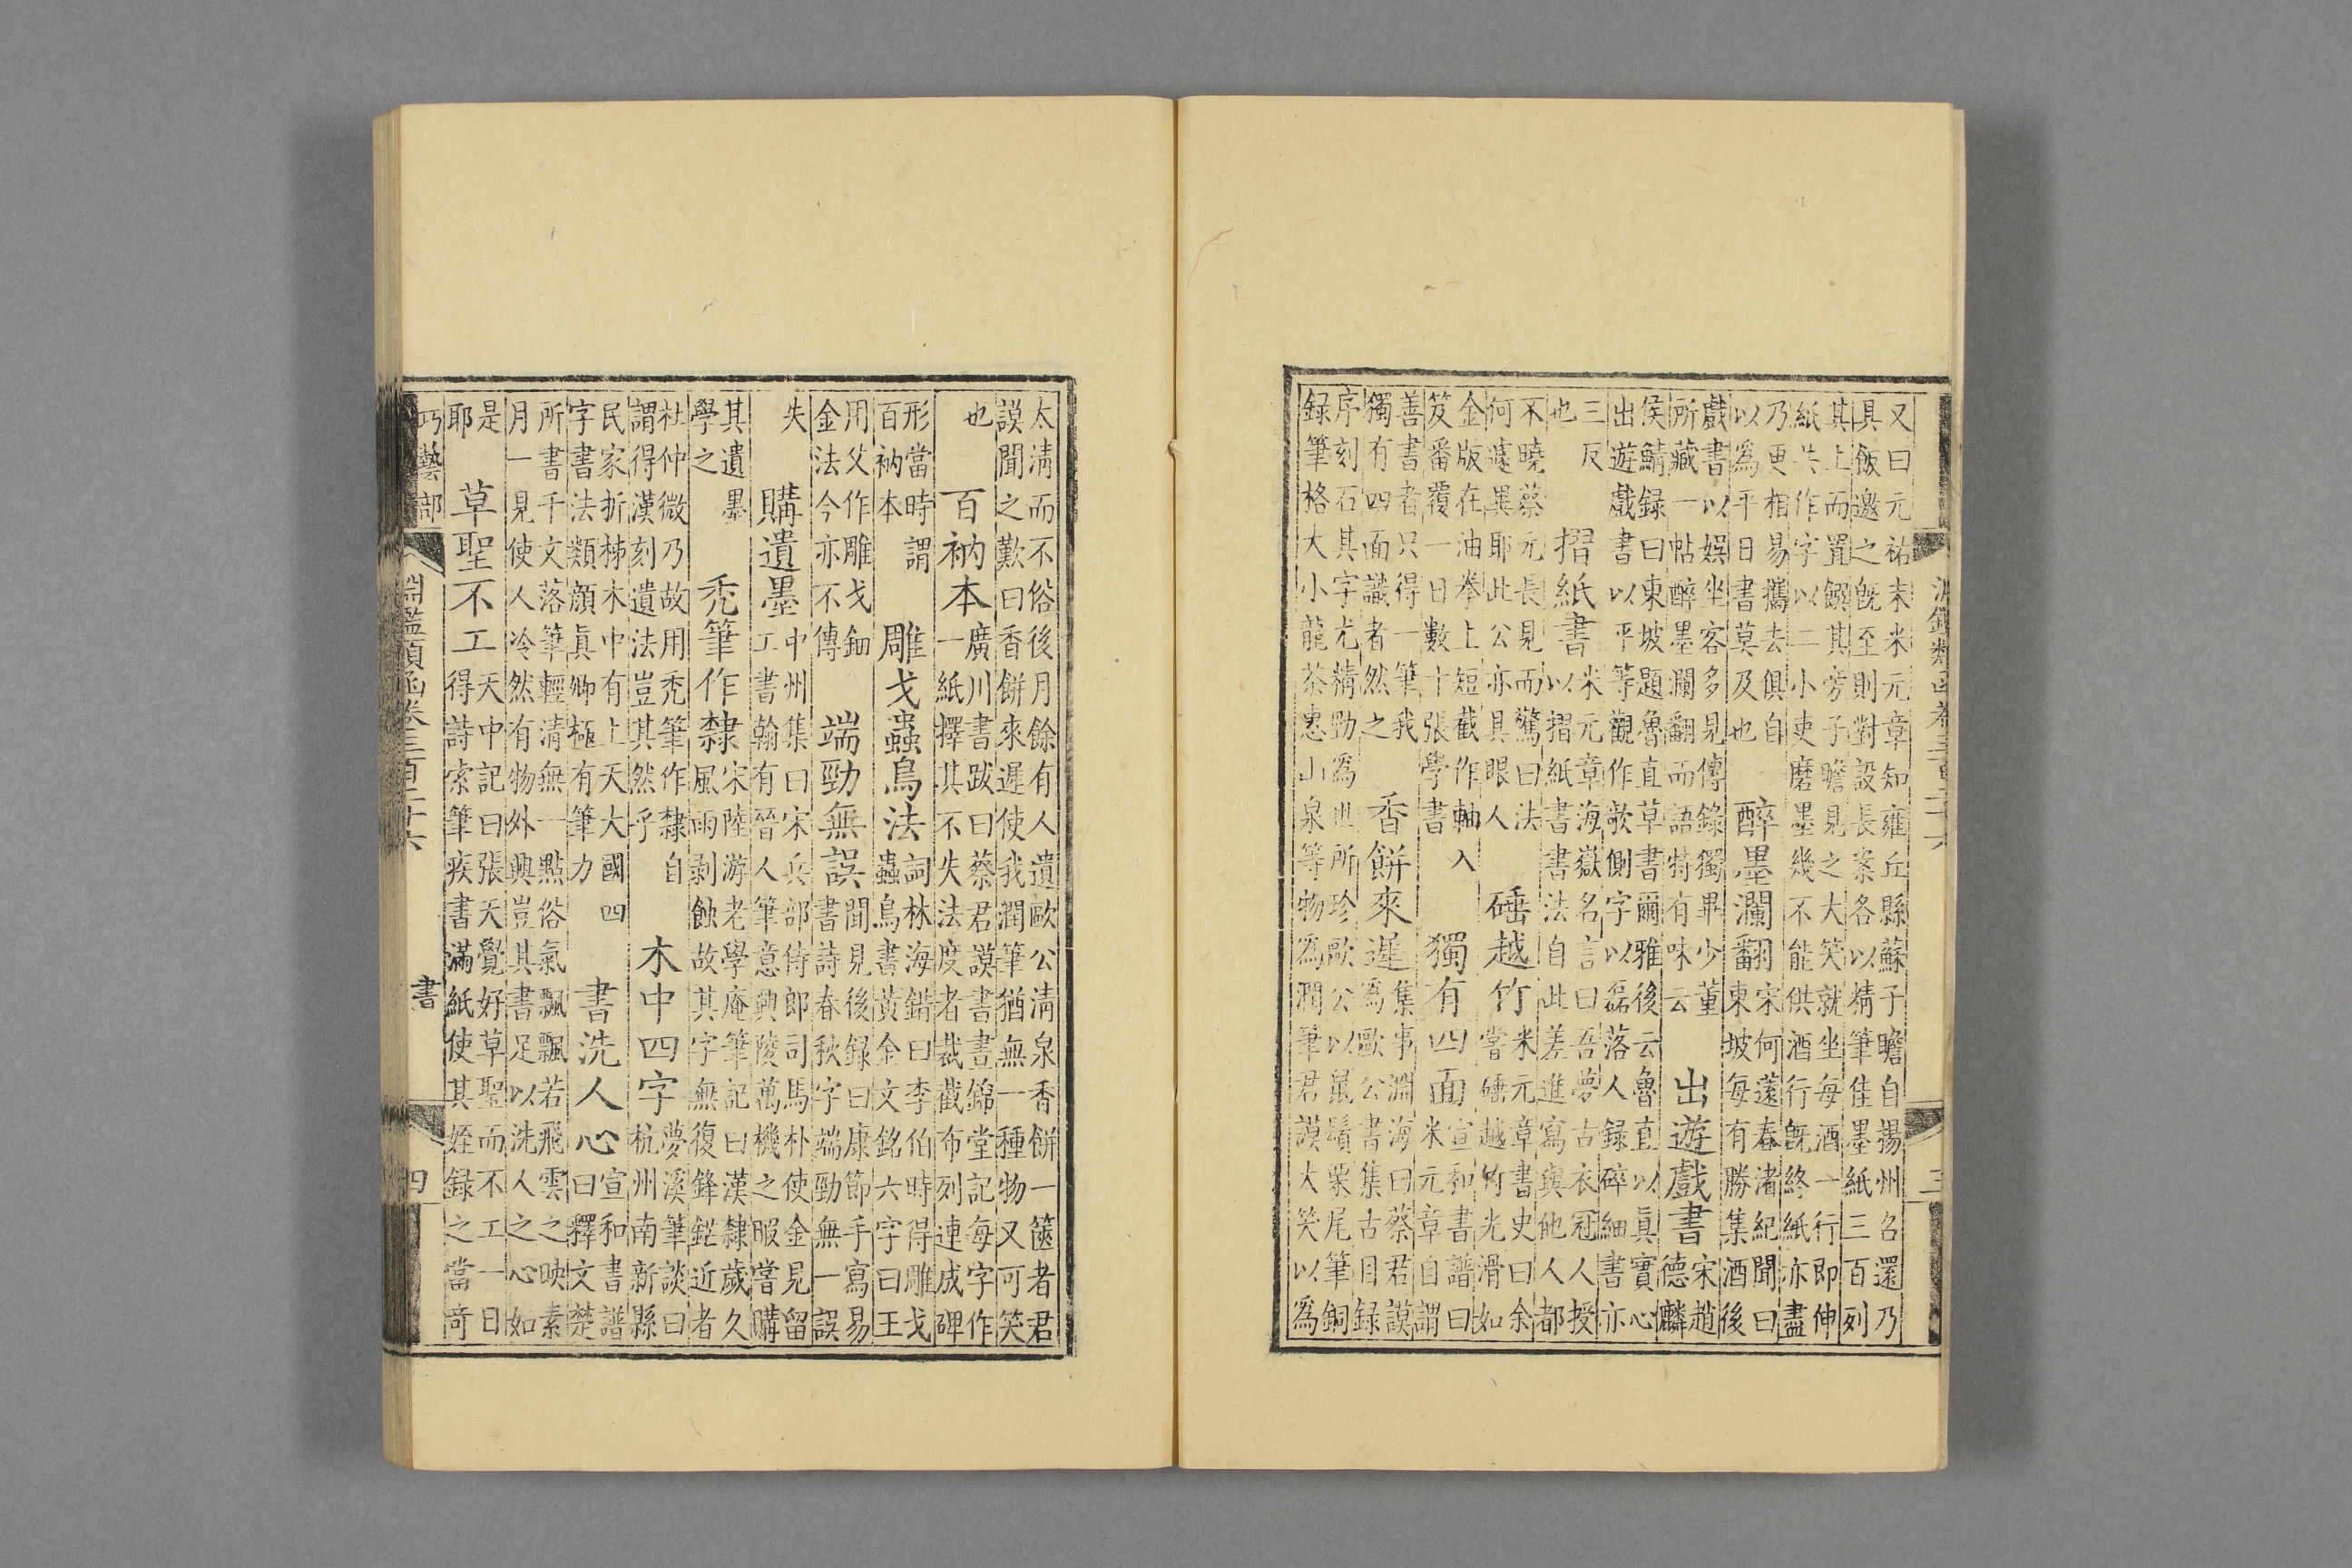 淵鑑類函卷三百二十六
三
又曰元祐末米元章知雍丘縣蘇子瞻自揚州召還乃
具飯邀之旣至則對設長案各以精筆佳墨紙三百列
其上而置饌其旁子瞻見之大笑就坐每酒一行即伸
紙共作字以二小吏磨墨幾不能供酒行旣終紙亦盡
乃更相易攜去俱自
以為平日書莫及也
醉墨瀾翻
宋何薳春渚紀聞曰
東坡每有勝集酒後
戲書以娛坐客多見傳錄獨畢少董
所藏一帖醉墨瀾翻而語特有味云
出遊戲書
宋趙
德麟
侯鯖録曰東坡題魯直草書爾雅後云魯直以真實心
出遊戲書以平等觀作欹側字以磊落人録碎細書亦
三反
也
摺紙書
米元章海嶽名言曰吾夢古衣冠人授
以摺紙書書法自此差進寫與他人都
不曉蔡元長見而驚曰法
何遽異耶此公亦具眼人
硾越竹
米元章書史曰余
嘗硾越竹光滑如
金版在油拳上短截作軸入
笈番覆一日數十張學書
獨有四面
宣和書譜曰
米元章自謂
善書者只得一筆我
獨有四面識者然之
香餅來遲
集事淵海曰蔡君謨
為歐公書集古目録
序刻石其字尤精勁為世所珍歐公以鼠鬚栗尾筆銅
録筆格大小龍茶惠山泉等物為潤筆君謨大笑以為
太清而不俗後月餘有人遺歐公清泉香餅一篋者君
謨聞之歎曰香餅來遲使我潤筆猶無一種物又可笑
也
百衲本
廣川書跋曰蔡君謨書晝錦堂記每字作
一紙擇其不失法度者裁截布列連成碑
形當時謂
百衲本
雕戈蟲鳥法
詞林海錯曰李伯時得雕戈
蟲鳥書黃金文銘六字曰王
用父作雕戈鈿
金法今亦不傳
端勁無誤
聞見後録曰康節手寫易
書詩春秋字端勁無一誤
失
購遺墨
中州集曰宋兵部侍郎司馬朴使金見留
工書翰有晉人筆意輿陵萬機之暇嘗購
其遺墨
學之
禿筆作隸
宋陸游老學庵筆記曰漢隸歲久
風雨剝蝕故其字無復鋒鋩近者
杜仲微乃故用禿筆作隸自
謂得漢刻遺法豈其然乎
木中四字
夢溪筆談曰
杭州南新縣
民家折柹木中有上天大國四
字書法類顏眞卿極有筆力
書洗人心
宣和書譜
曰釋文楚
所書千文落筆輕清無一點俗氣飄飄若飛雲之映素
月一見使人冷然有物外興豈其書足以洗人之心如
是
耶
草聖不工
天中記曰張天覺好草聖而不工一日
得詩索筆疾書滿紙使其姪録之當奇
巧藝部
淵鑑類函卷三百二十六
書
四